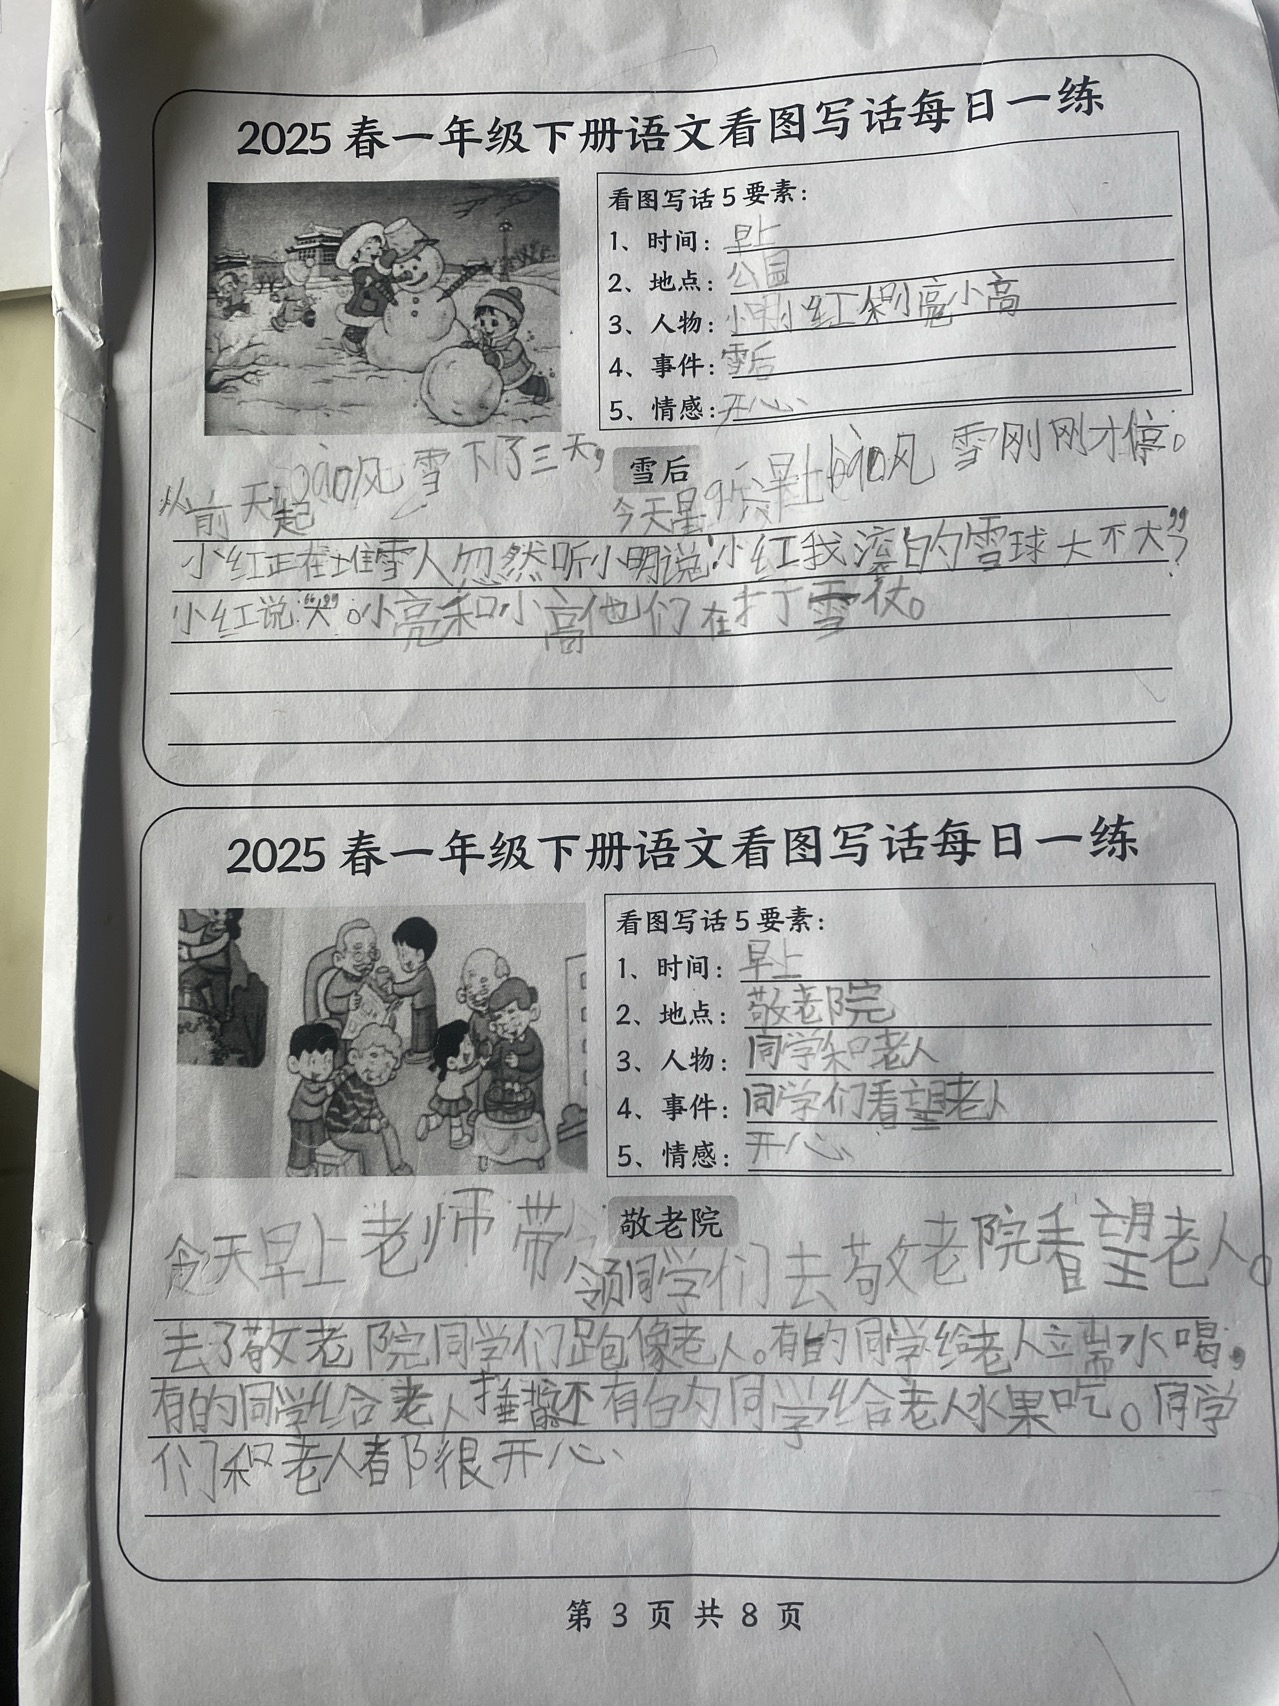 2025 春一年级下册语文看图写话每日一练
看图写话 5 要素：
1、时间：早上
2、地点：公园
3、人物：小明小红和小亮小高
4、事件：雪后
5、情感：开心
雪后
从前天起bào风雪下了三天，今天是早上bào风雪刚刚才停。
小红正在堆雪人忽然听小明说：“小红我滚的雪球大不大”？
小红说：“大”。小亮和小高他们在打雪仗。
2025 春一年级下册语文看图写话每日一练
看图写话 5 要素：
1、时间：早上
2、地点：敬老院
3、人物：同学和老人
4、事件：同学们看望老人
5、情感：开心
敬老院
今天早上老师带领同学们去敬老院看望老人。
去了敬老院同学们跑像老人。有的同学给老人端水喝，
有的同学给老人捶 还有的同学给老人水果吃。同学
们和老人都很开心
第 3 页 共 8 页